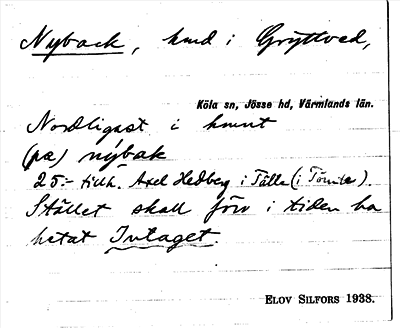 Nyback, hmd i Gryttved,
Köla sn, Jösse hd, Värmlands län.
Nordligast i hmnt
(pæ) nýbak
25:- tillh. Axel Hedberg i Tälle (i Tömte).
Stället skall förr i tiden ha
hetat Intaget.
ELOV SILFORS 1938.